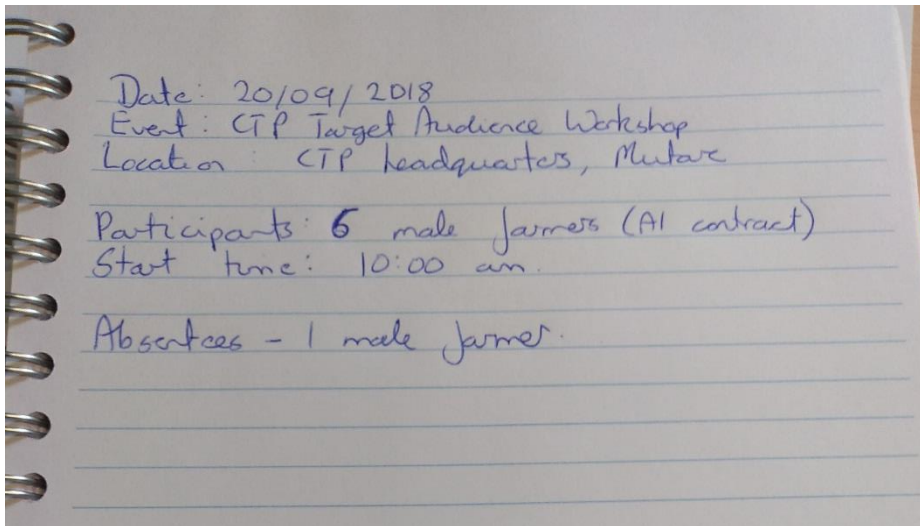 Date: 20/09/2018
Event: CTP Target Audience Workshop
Location: CTP headquarters, Mutare
Participants: 6 male farmers (A1 contract)
Start time: 10:00 am.
Absentees - 1 male farmer.